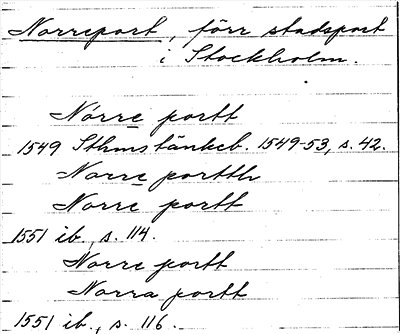 Norreport, förr stadsport
i Stockholm.
Norre portt
1549 Sthms tänkeb. 1549-53, s. 42.
Norre portth
Norre portt
1551 ib., s. 114.
Norre portt
Norra portt
1551 ib., s. 116.